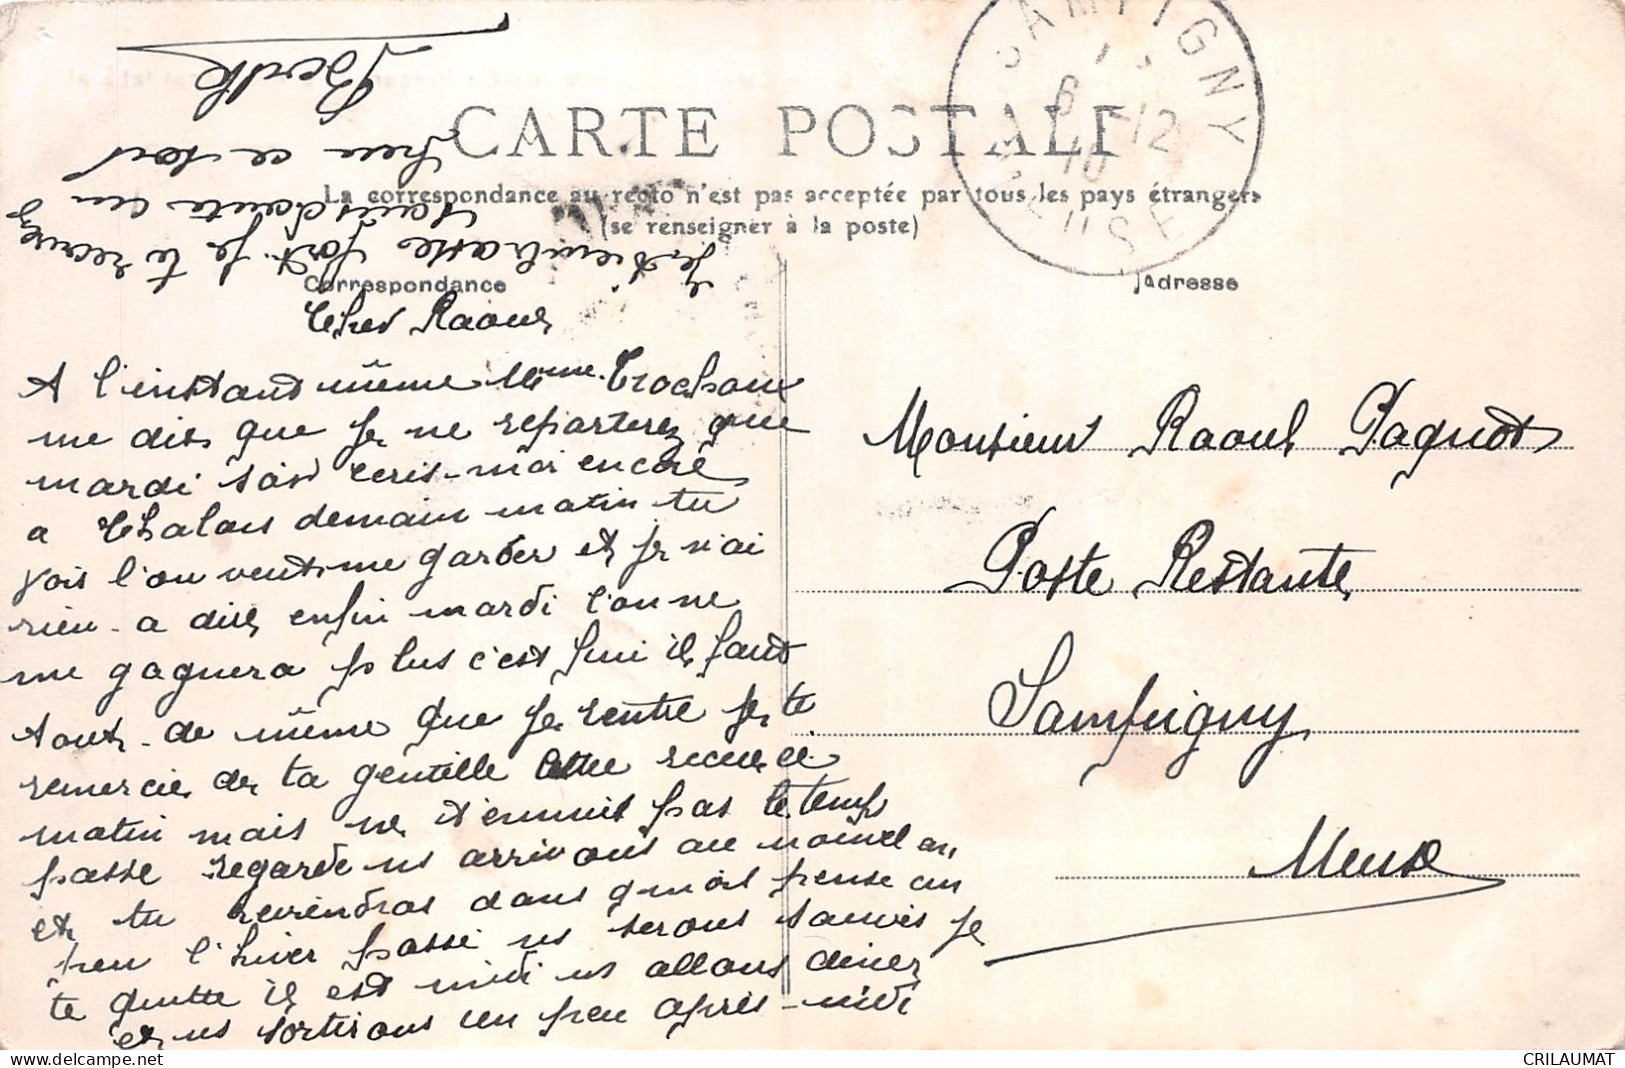 CARTE POSTALE
La correspondance au recto n'est pas acceptée par tous les pays étrangers
(se renseigner à la poste)
Correspondance
Adresse
SAMPIGNY
6 -12
10
MEUSE
Cher Raoul
A l'instant même Mme Trochon
me dis que je ne reparterez que
mardi soir ecris-moi encore
a Chalons demain matin tu
vois l'on veut me garder et je n'ai
rien a dire enfin mardi l'on ne
me gagnera plus c'est fini il faut
tout de même que je rentre je te
remercie de ta gentille lettre recue ce
matin mais ne t'ennuie pas le temp
passe regarde ns arrivons au nouvel an
et tu reviendras dans quoi pense un
peu l'hiver passé ns serons sauvés je
te quitte il est midi ns allons diner
et ns sortirons un peu après-midi
Je t'embrasse fort. Je te
souhaite un
peu ce soir
Berthe
Monsieur Raoul Pagnot
Poste Restante
Sampigny
Meuse
CRILAUMAT